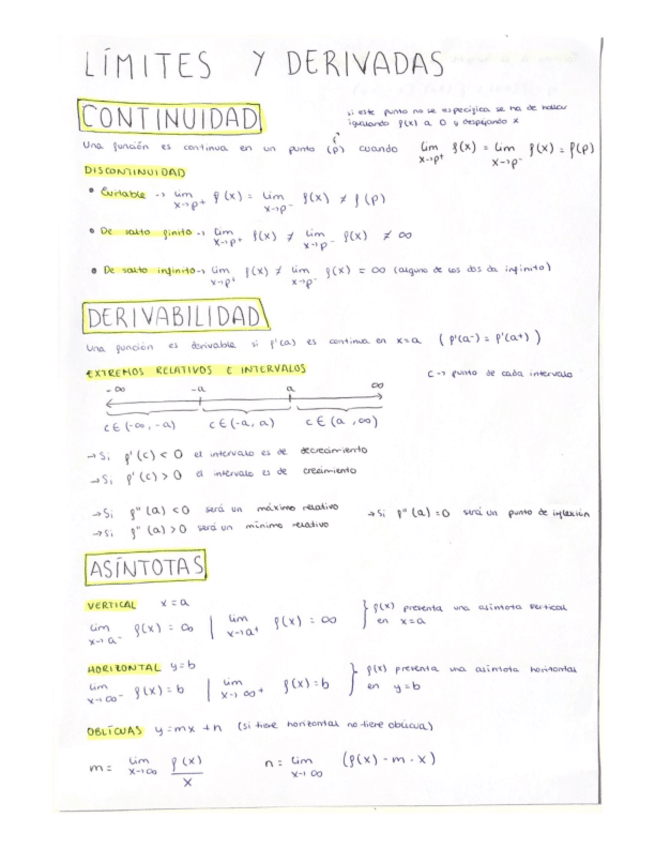 LÍMITES Y DERIVADAS
CONTINUIDAD
si este punto no se especifica se ha de hallar
igualando f(x) a 0 y despejando x
Una función es continua en un punto (p) cuando lim x→p+ f(x) = lim x→p- f(x) = f(p)
DISCONTINUIDAD
• Evitable → lim x→p+ f(x) = lim x→p- f(x) ≠ f(p)
• De salto finito → lim x→p+ f(x) ≠ lim x→p- f(x) ≠ ∞
• De salto infinito → lim x→p+ f(x) ≠ lim x→p- f(x) = ∞ (alguno de los dos da infinito)
DERIVABILIDAD
Una función es derivable si f'(a) es continua en x=a ( f'(a-) = f'(a+) )
EXTREMOS RELATIVOS E INTERVALOS
c → punto de cada intervalo
-∞ -a a ∞
c∈(-∞,-a) c∈(-a, a) c∈(a,∞)
→ Si f'(c) < 0 el intervalo es de decrecimiento
→ Si f'(c) > 0 el intervalo es de crecimiento
→ Si f''(a) < 0 será un máximo relativo → Si f''(a) = 0 será un punto de inflexión
→ Si f''(a) > 0 será un mínimo relativo
ASÍNTOTAS
VERTICAL x=a
lim x→a- f(x) = ∞ | lim x→a+ f(x) = ∞ } f(x) presenta una asíntota vertical
en x=a
HORIZONTAL y=b
lim x→∞- f(x) = b | lim x→∞+ f(x) = b } f(x) presenta una asíntota horizontal
en y=b
OBLÍCUAS y=mx+n (si tiene horizontal no tiene oblicua)
m = lim x→∞ f(x)/x n = lim x→∞ (f(x) - m · x)